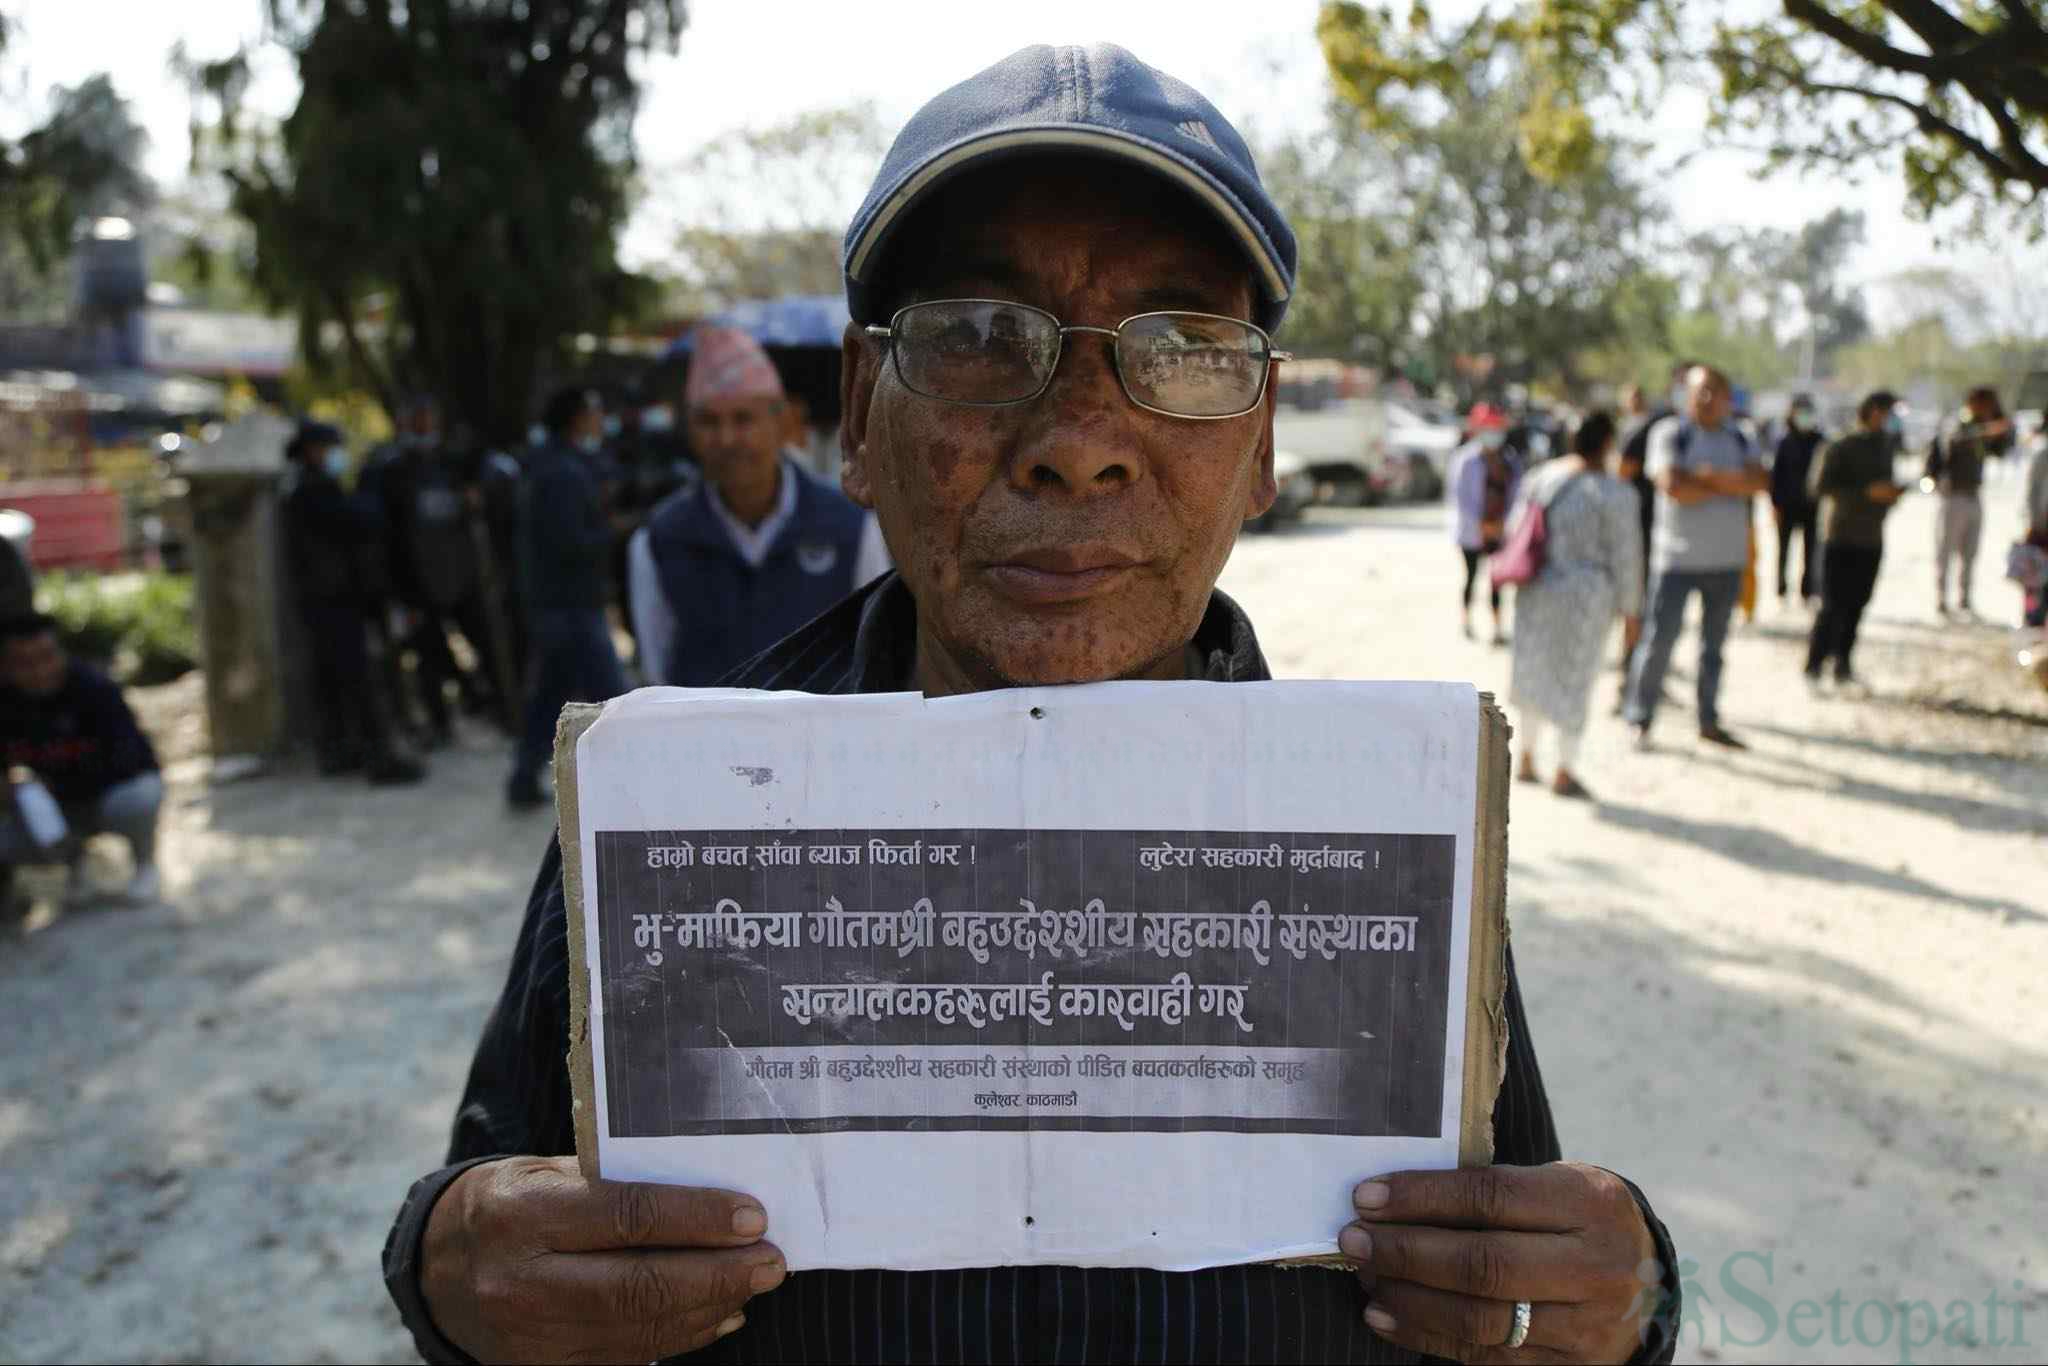 हाम्रो बचत साँवा ब्याज फिर्ता गर !
लुटेरा सहकारी मुर्दाबाद !
भु-माफिया गौतमश्री बहुउद्देश्शीय सहकारी संस्थाका
सन्चालकहरूलाई कारवाही गर
गौतम श्री बहुउद्देश्शीय सहकारी संस्थाको पीडित बचतकर्ताहरुको समुह
कुलेश्वर, काठमाडौं
Setopati